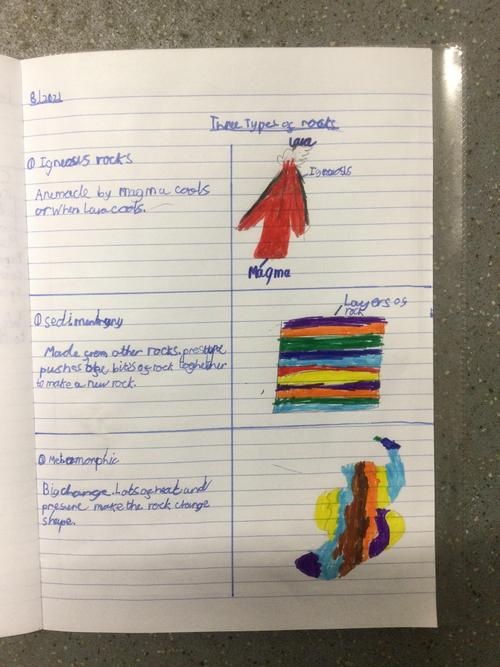 8/2021
Three Types of rocks
① Igneosis rocks
lava
Igneosis
Aremade by Magma cools
or when Lava cools.
Magma
① sedimentary
Layers of
rock
Made from other rocks. pressure
pushes bits of rock toghether
to make a new rock.
① Metamorphic
Big change. Lots of heat and
presure make the rock change
shape.